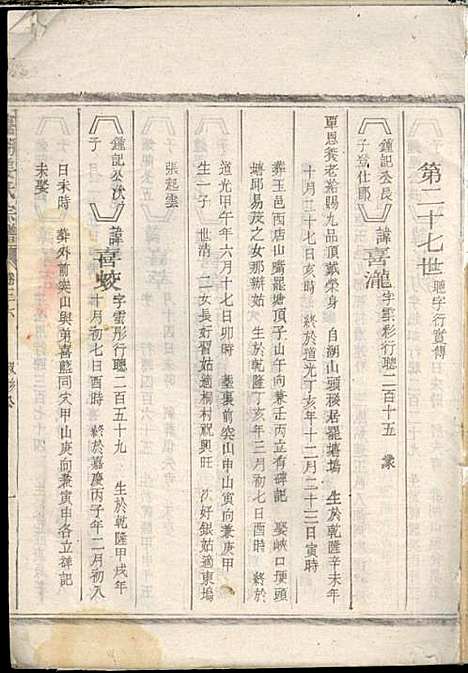 第二十七世 聰字行實傳
鍾記公長子登仕郎 諱喜瀧 字雲彩行聰二百十五 蒙
覃恩養老給賜九品頂戴榮身 自湖山頭移居罷塘塢 生於乾隆辛未年
十月三十七日亥時 終於道光丁亥年十二月二十三日寅時
葬玉邑西店山嘴罷塘頂子山午向兼壬丙立有碑記 娶峽口埂頭
塘邱易茂之女那辦姑 生於乾隆丁亥年三月初七日酉時 終於
道光甲午年六月十七日卯時 墓裏前突山申山寅向兼庚甲
生一子 世清 二女長好習姑適桐村祝興旺 次好銀姑適東塢
張起雲
鍾記公次子 諱喜蛟 字雲彤行聰二百五十九 生於乾隆甲戌年
十月初七日酉時 終於嘉慶丙子年二月初八
日未時 葬外前突山與弟喜陞同穴甲山庚向兼寅申各立碑記
未娶
宗譜